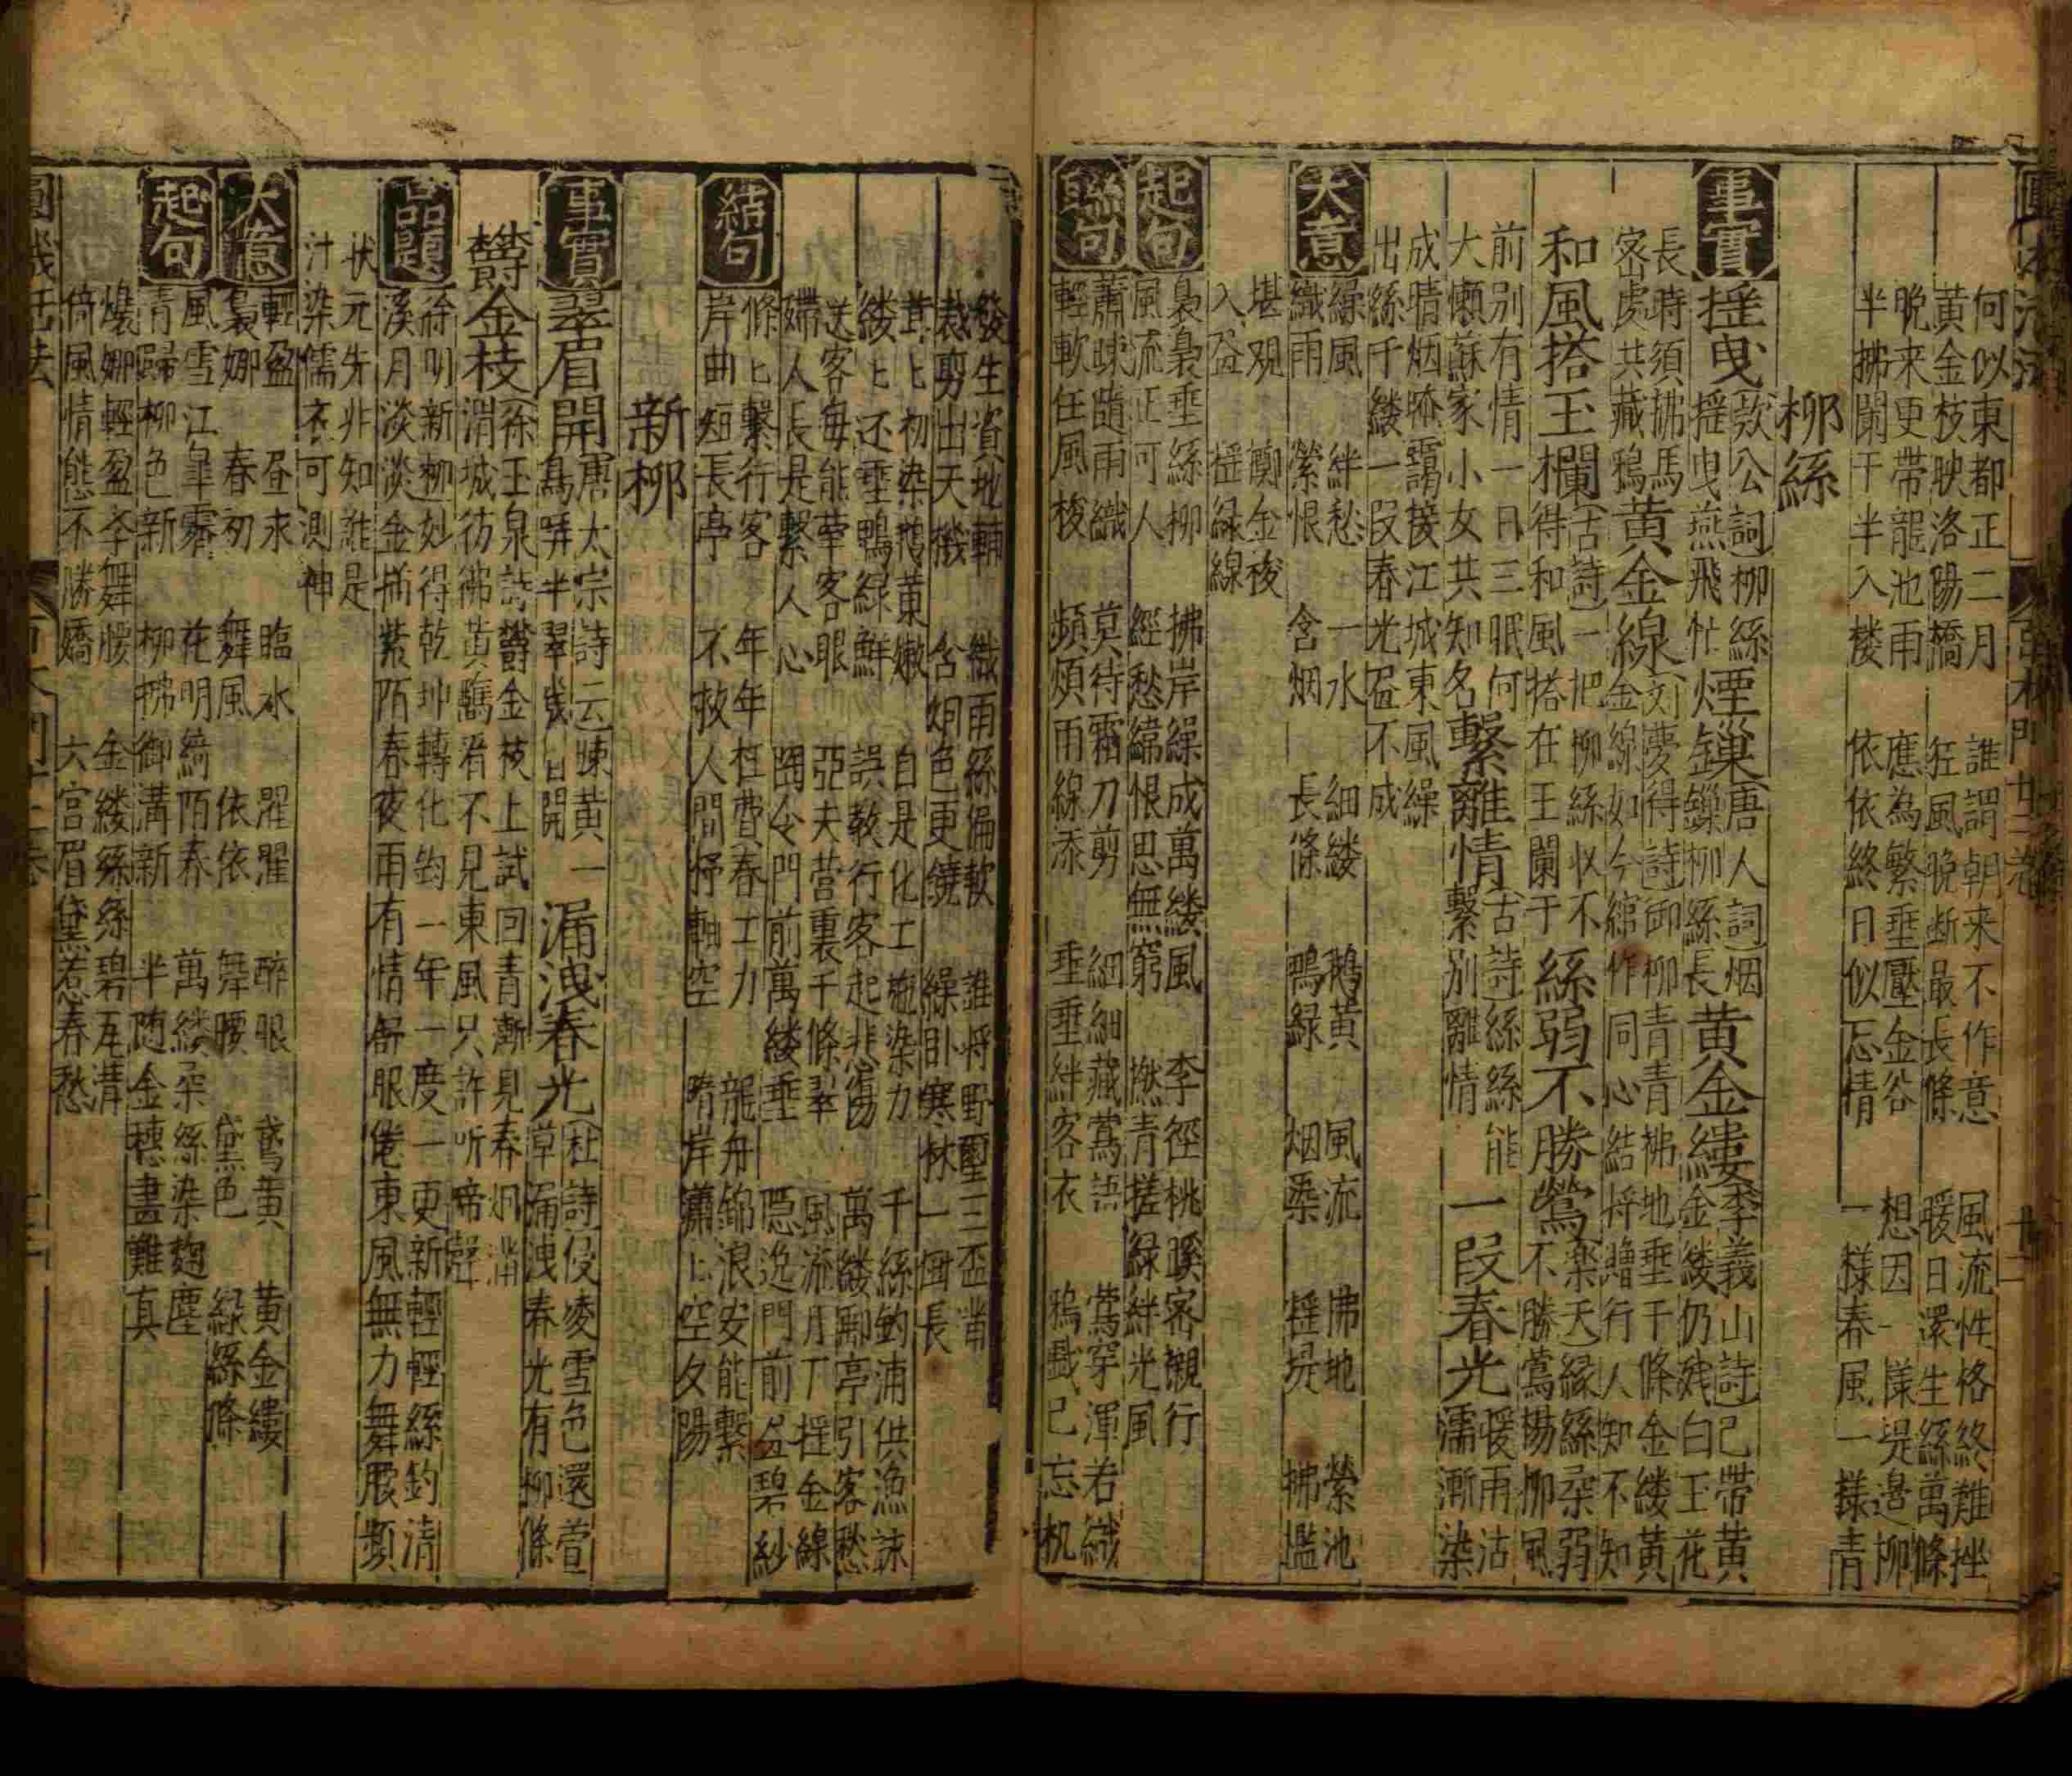 何似東都正二月　誰謂朝来不作意　風流性格終難挫
黄金枝映洛陽橋　狂風晚断最長條　暖日還生絲萬條
晚来更帶龍池雨　應為繁垂壓金谷　想因一㨾堤邉柳
半拂闌干半入楼　依依終日似忘情　一様春風一様青
柳絲
事實
揺曳
歐公詞柳絲揺曳燕飛忙
煙鏁
唐人詞烟鏁柳絲長
黄金縷
李義山詩已帶黄金縷仍殘白玉花
長時須拂馬宻處共藏鴉
黄金線
劉夢得詩御柳青青拂地垂千條金縷萬
金線如今綰作同心結将贈行人知不知
和風搭玉欄
古詩一把柳絲収不得和風搭在玉闌干
絲弱不勝鶯
樂天緑絲朶弱不勝鶯楊柳風
前别有情一日三眠何
大懶蘇家小女共知名
繫離情
古詩絲絲能繫别離情
一段春光
暖雨沾濡漸染
成晴烟晻靄接江城東風繰
出絲千縷一段春光盈不成
大意
繰風　絆愁　一水　細縷　鵝黄　風流　拂地　縈池
織雨　縈恨　含烟　長條　鴨緑　烟染　揺堤　拂檻
堪观　鄭金梭
入盆　揺緑線
起句
裊裊垂絲柳　拂岸繰成萬縷風　李徑桃蹊密襯行
風流正可人　經愁緯恨思無窮　撚青搓緑絆光風
聯句
蕭疎隨雨織　莫待霜刀剪　細細藏鶯語　鶯穿渾若織
輕軟任風梭　頻煩雨線添　垂垂絆客衣　鴉戯已忘机
發生資地輔　織雨絲偏軟　誰将野
裁剪出天機　含烟色更鐃　繰卧寒林一国長
茸匕初染鵝黄嫩　自是化工施染力　千絲釣浦供漁
縷匕还垂鴨緑鮮　誤教行客起悲傷　萬縷郵亭引客愁
送客每能牽客眼　亞夫营裏千條翠　風流月下揺金線
婦人長是繫人心　陶令門前萬縷垂　隠逸門前盆碧紗
結句
條匕繫行客　年年枉費春工力　龍舟錦浪安能繫
岸曲短長亭　不放人間杼軸空　隋岸瀟匕空夕陽
新柳
事實
翠眉開
唐太宗詩云疎黄一鳥哢半翠幾眉開
漏洩春光
杜詩侵凌雪色還萱草漏洩春光有柳條
欝金枝
徐玉泉詩欝金枝上試回青漸見春烟満
渭城彷彿黄鸝看不見東風只許听啼聲
品題
徐明新柳妙得乾坤轉化鈞一年一度一更新輕輕絲釣清
溪月淡淡金描紫陌春夜雨有情舒眼倦東風無力舞腰頻
状元先非知誰是
汁染儒衣可測神
大意
輕盈　昼求　臨水　濯濯　醉眼　鵞黄　黄金縷
裊娜　春初　舞風　依依　舞腰　黛色　緑絲條
起句
風雪江皐霽　花明綺陌春　萬縷朶絲染麹塵
青歸柳色新　柳拂御溝新　半随金穗畫難真
㒟娜輕盈李舞腰　金縷絲絲碧瓦溝
倚風情態不勝嬌　六宫眉黛惹春愁